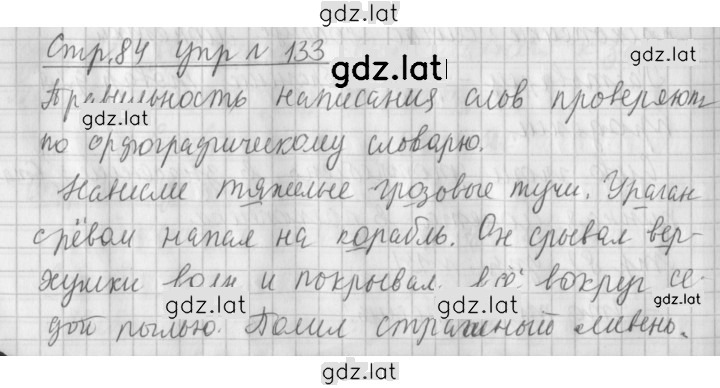 gdz.lat
Стр.84 упр № 133
gdz.lat
gdz.lat
Правильность написания слов проверяют
gdz.lat
по орфографическому словарю.
Нависли тяжелые грозовые тучи. Ураган
с рёвом напал на корабль. Он срывал вер-
хушки волн и покрывал всё вокруг се-
gdz.lat gdz.lat gdz.lat
дой пылью. Полил страшный ливень.
gdz.lat